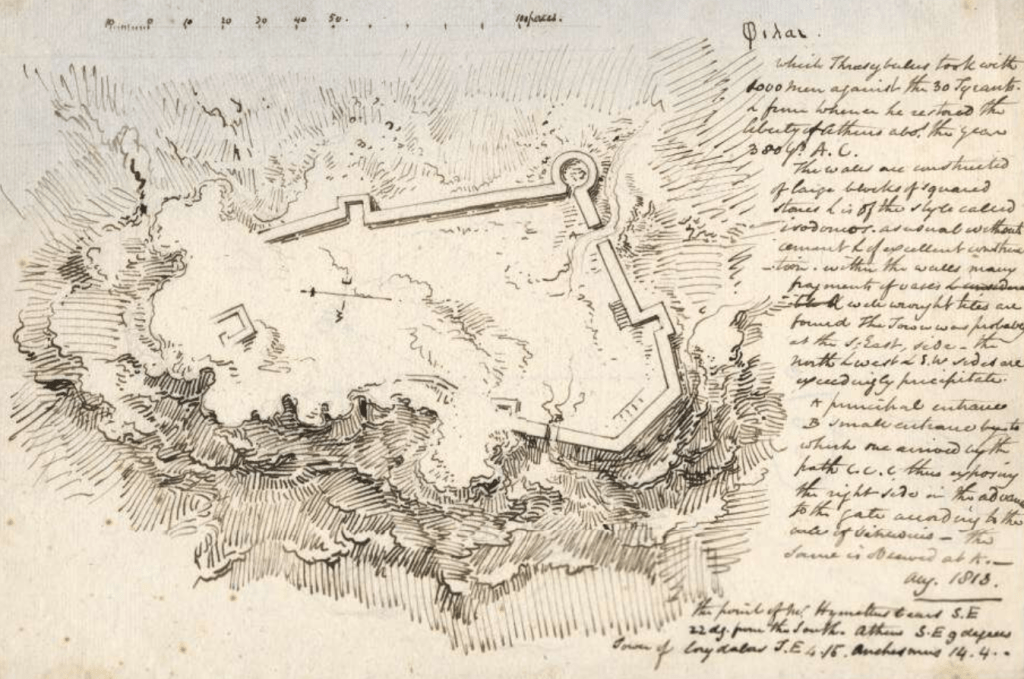 10 0 10 20 30 40 50. 100 paces.
Φιλαι.
which Thrasybulus took with
1000 men against the 30 Tyrants.
& from whence he restored the
liberty of Athens abt. the year
380 A. C.
The walls are constructed
of large blocks of squared
stones & is of the style called
isodomos. as usual without
cement & of excellent construc
-tion. within the walls many
fragments of vases &
well wrought tiles are
found The Town was probably
at the S. East, side - the
north & west & S. W sides are
exceedingly precipitate
A principal entrance
B small entrance by to
which one arrived by the
path C. C. C thus exposing
the right side in the advance
to the gate according to the
rule of Vitruvius - the
same is observed at A. -
Aug. 1813.
the point of Mt. Hymettus bears S. E
22 dg. from the South. Athens S. E 9 degrees
Town of Corydalus S. E 4. 15. Anchesmus 14. 4. -